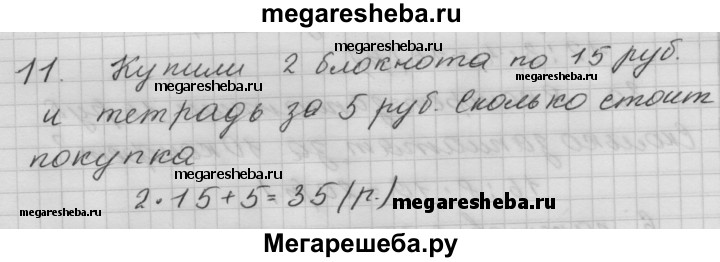 megaresheba.ru
megaresheba.ru
11. Купили 2 блокнота по 15 руб.
megaresheba.ru megaresheba.ru
и тетрадь за 5 руб. Сколько стоит
покупка
megaresheba.ru
2·15+5=35(р.) megaresheba.ru
megaresheba.ru
Мегарешеба.ру